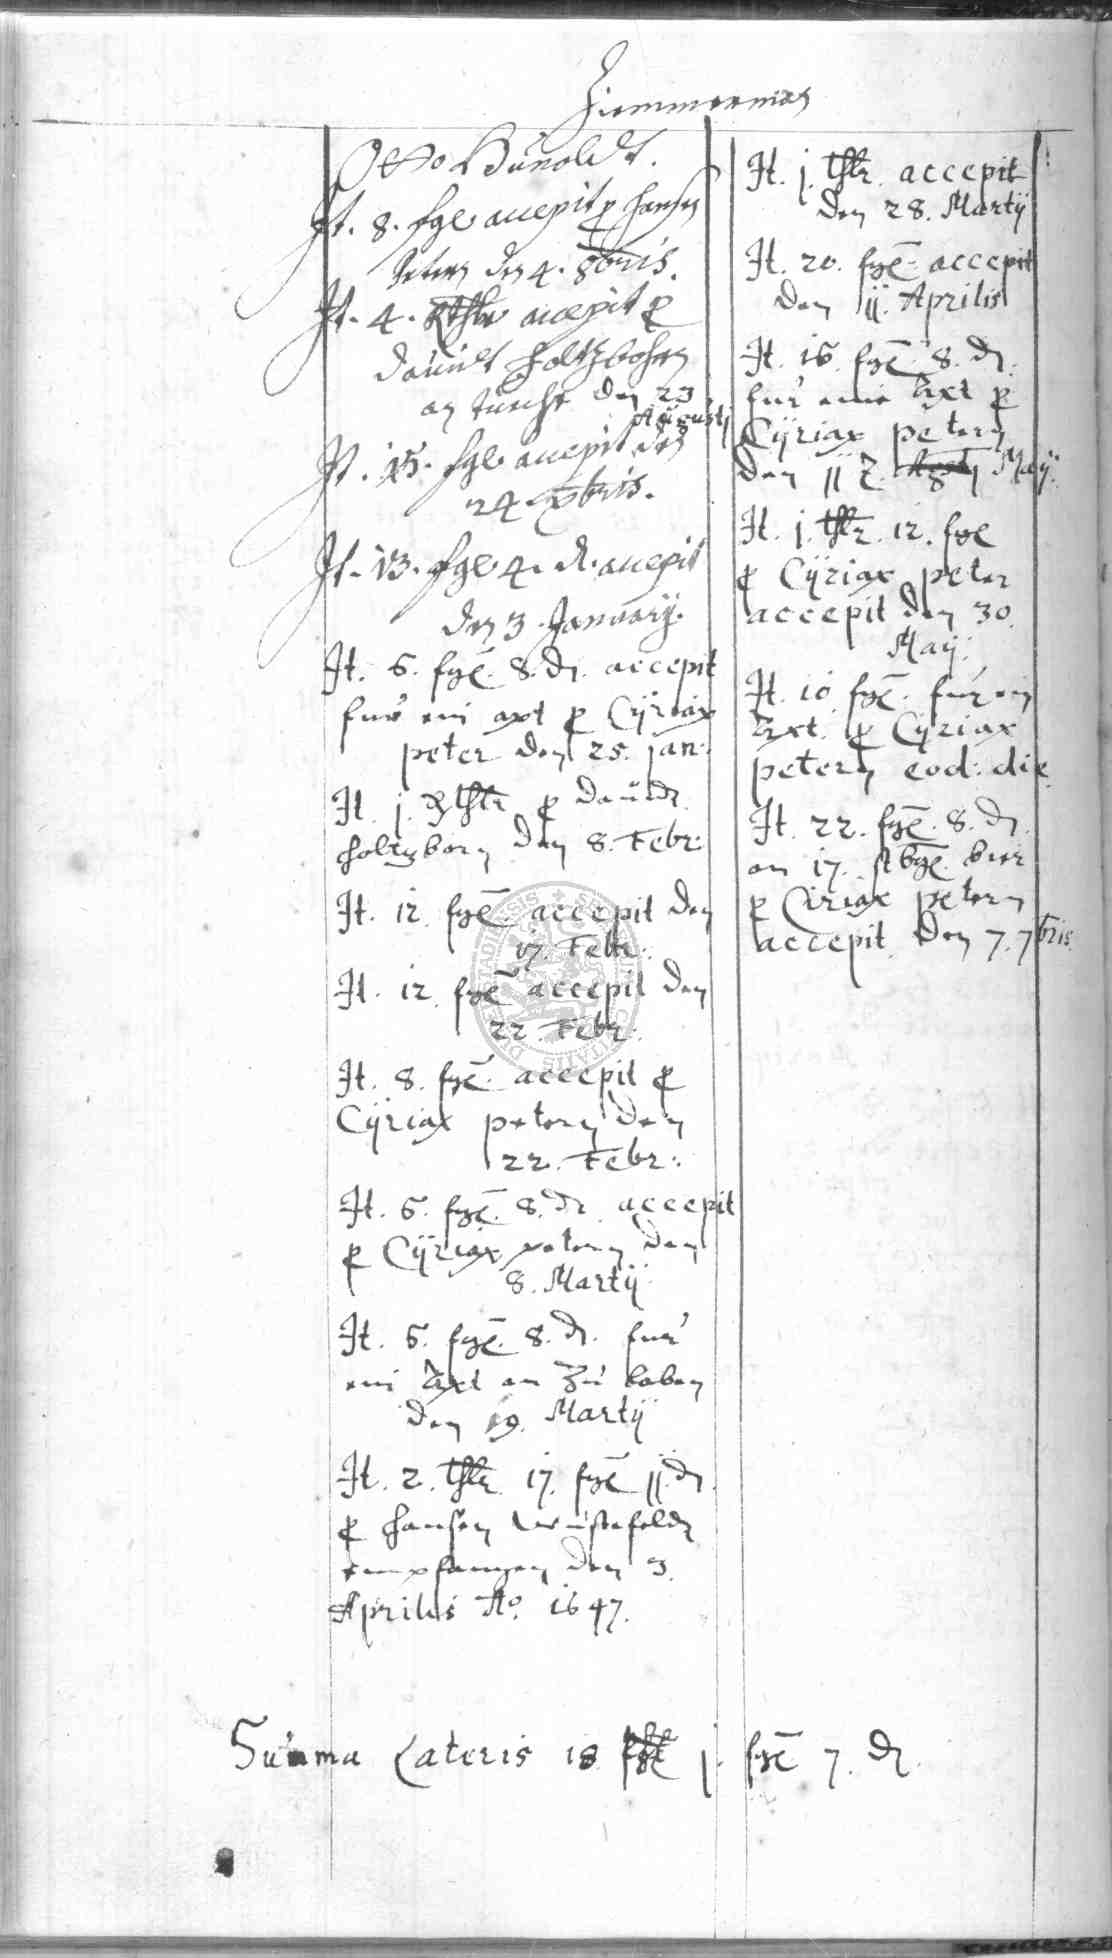 Zimmerman
Otto Bünoldt.
It. 8. fgl accepit p hansen
Petern den 4. 8bris.
It. 4. Rthlr accepit p
Dauidt Holtzborn
an tuche den 23
Augusti
It. 15. fgl accepit den
24. xbris.
It. 13. fgl 4. d. accepit
den 3. January.
It. 6. fgl. 8. d. accepit
fur ein axt p Cÿriax
peter den 25. jan:
It. j. Rthlr p Dauidt
Holtzborn den 8. Febr:
It. 12 fgl. accepit den
17. Febr:
It. 12 fgl accepit den
22 Febr:
It. 8. fgl. accepit p
Cÿriax petern den
22. Febr:
It. 6. fgl. 8. d. accepit
p Cÿriax petern den
8. Martij
It. 6. fgl. 8. d. fur
ein Axt an zu
den 19. Martij
It. 2. thlr. 17. fgl jj. d
p Hansen Wüstefeldt
empfangen den 3.
Aprilis Ao. 1647.
It. j. thlr. accepit
den 28. Martij
It. 20. fgl. accepit
den jj. Aprilis
It. 16. fgl. 8. d.
fur eine Axt p
Cÿriax petern
den jj Maij.
It. j. thlr. 12. fgl
p Cÿriax peter
accepit den 30.
Maij.
It. 10. fgl. fur ein
Axt. p Cÿriax
petern eod: die
It. 22. fgl. 8. d.
an 17. bier
p Ciriax petern
accepit den 7. 7bris.
Summa Lateris 18 thlr j. fgl 7. d.